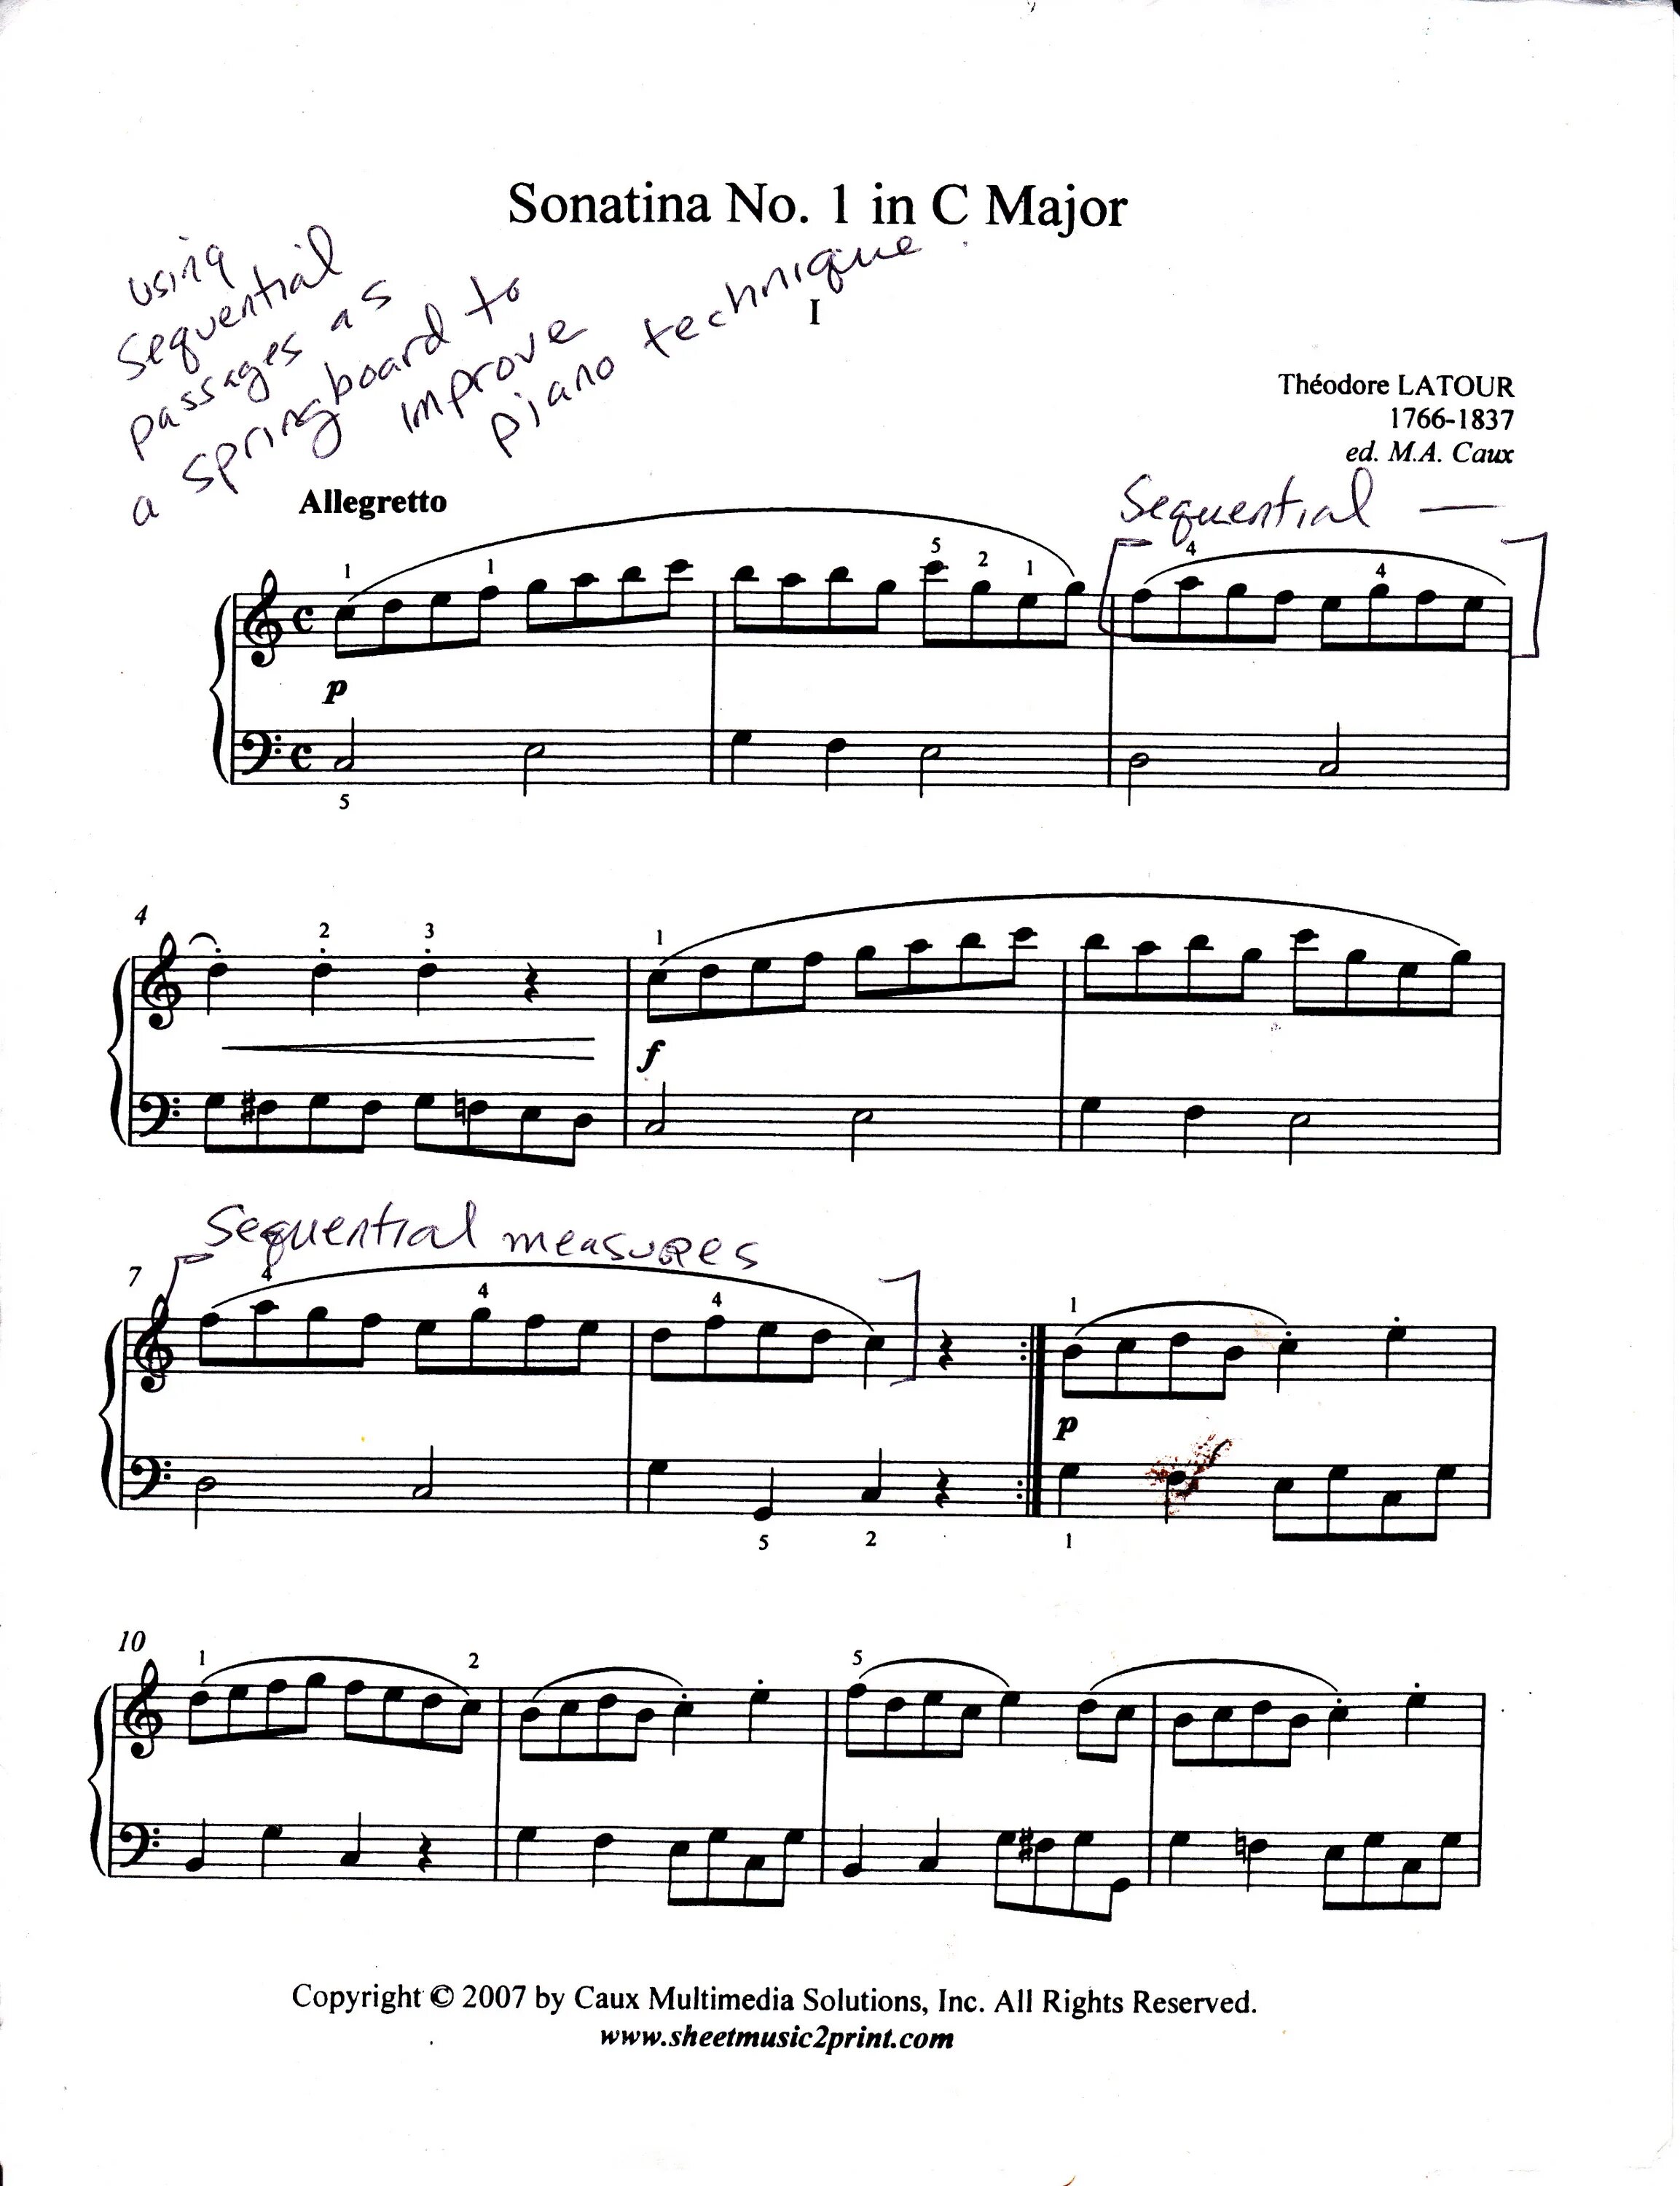 Sonatina No. 1 in C Major
using
sequential
passages as
a springboard to
improve
piano technique
I
Théodore LATOUR
1766-1837
ed. M.A. Caux
Allegretto
Sequential —
1 1 5 2 1 4 4
p
5
4
2 3 1
f
Sequential measures
7
4 4 4 1
p
5 2 1
10
1 2 5
Copyright © 2007 by Caux Multimedia Solutions, Inc. All Rights Reserved.
www.sheetmusic2print.com